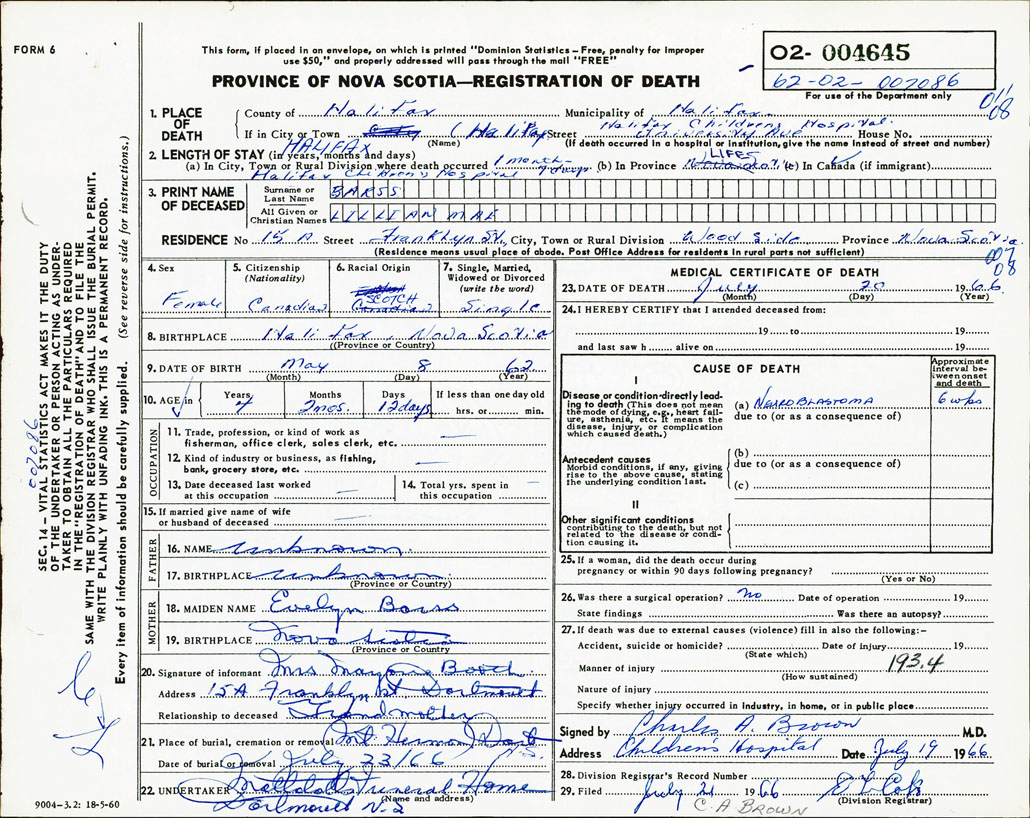 FORM 6
This form, if placed in an envelope, on which is printed "Dominion Statistics – Free, penalty for improper
use $50," and properly addressed will pass through the mail "FREE"
PROVINCE OF NOVA SCOTIA—REGISTRATION OF DEATH
O2- 004645
62-02-007086
For use of the Department only
08
1. PLACE OF DEATH
County of Halifax Municipality of Halifax
Halifax Childrens Hospital
If in City or Town (Halifax Street House No.
(Name) (If death occurred in a hospital or institution, give the name instead of street and number)
HALIFAX
2. LENGTH OF STAY (in years, months and days)
LIFE
(a) In City, Town or Rural Division where death occurred 1 month (b) In Province (c) In Canada (if immigrant)
Halifax Children's Hospital
3. PRINT NAME OF DECEASED
Surname or Last Name BARSS
All Given or Christian Names LILLIAN MAE
RESIDENCE No 15 A Street Franklyn St, City, Town or Rural Division Wood Side Province Nova Scotia
(Residence means usual place of abode. Post Office Address for residents in rural parts not sufficient)
007
08
4. Sex
Female
5. Citizenship (Nationality)
Canadian
6. Racial Origin
SCOTCH
Canadian
7. Single, Married, Widowed or Divorced (write the word)
Single
8. BIRTHPLACE Halifax, Nova Scotia
(Province or Country)
9. DATE OF BIRTH May 8 62
(Month) (Day) (Year)
10. AGE in
Years 4
Months 2 mos.
Days 12 days
If less than one day old
hrs. or min.
OCCUPATION
11. Trade, profession, or kind of work as
fisherman, office clerk, sales clerk, etc.
12. Kind of industry or business, as fishing,
bank, grocery store, etc.
13. Date deceased last worked
at this occupation
14. Total yrs. spent in
this occupation
15. If married give name of wife
or husband of deceased
FATHER
16. NAME unknown
17. BIRTHPLACE unknown
(Province or Country)
MOTHER
18. MAIDEN NAME Evelyn Barss
19. BIRTHPLACE Nova Scotia
(Province or Country)
20. Signature of informant Mrs Booth
Address 15A Franklyn St Dartmouth
Relationship to deceased Grandmother
21. Place of burial, cremation or removal Mt. Hermon Dart
Date of burial or removal July 23/66
22. UNDERTAKER Funeral Home
(Name and address)
Dartmouth N-S
9004-3.2: 18-5-60
MEDICAL CERTIFICATE OF DEATH
23. DATE OF DEATH July 20 1966
(Month) (Day) (Year)
24. I HEREBY CERTIFY that I attended deceased from:
19 to 19
and last saw h alive on 19
CAUSE OF DEATH
Approximate interval between onset and death
I
Disease or condition directly leading to death (This does not mean
the mode of dying, e.g., heart failure, asthenia, etc. It means the
disease, injury, or complication
which caused death.)
(a) NEUROBLASTOMA 6 wks
due to (or as a consequence of)
Antecedent causes
Morbid conditions, if any, giving
rise to the above cause, stating
the underlying condition last.
(b)
due to (or as a consequence of)
(c)
II
Other significant conditions
contributing to the death, but not
related to the disease or condition causing it.
25. If a woman, did the death occur during
pregnancy or within 90 days following pregnancy?
(Yes or No)
26. Was there a surgical operation? no Date of operation 19
State findings Was there an autopsy?
27. If death was due to external causes (violence) fill in also the following:–
Accident, suicide or homicide? Date of injury 19
(State which)
193.4
Manner of injury
(How sustained)
Nature of injury
Specify whether injury occurred in industry, in home, or in public place
Signed by Charles A. Brown M.D.
Address Childrens Hospital Date July 19 1966
28. Division Registrar's Record Number
29. Filed July 21 1966
(Division Registrar)
C. A BROWN
SEC. 14 – VITAL STATISTICS ACT MAKES IT THE DUTY
OF THE UNDERTAKER OR PERSON ACTING AS UNDERTAKER TO OBTAIN ALL THE PARTICULARS REQUIRED
IN THE "REGISTRATION OF DEATH" AND TO FILE THE
SAME WITH THE DIVISION REGISTRAR WHO SHALL ISSUE THE BURIAL PERMIT.
WRITE PLAINLY WITH UNFADING INK. THIS IS A PERMANENT RECORD.
Every item of information should be carefully supplied. (See reverse side for instructions.)
007086